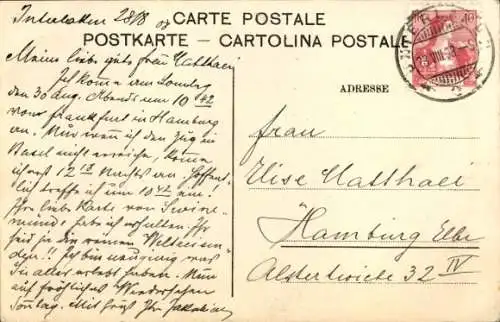 Interlaken 28/8 07
CARTE POSTALE
POSTKARTE – CARTOLINA POSTALE
ADRESSE
Meine liebe gute frau Matthaei
Ich komme am Sonntag
den 30 Aug. Abends um 10 42
von Frankfurt in Hamburg
an. Nur wenn ich den Zug in
Basel nicht erreiche, komme
ich erst 12 Nachts an. Hoffent-
lich treffe ich um 10 42 ein!
Ihr liebe Karte von Swine-
münde habe ich erhalten. Ihr
seid ja die reinen Weltenbumm-
Ich bin neugierig was
Sie alles erlebt haben. Nun
auf fröhliches Wiedersehen
Sonntag. Mit Gruß Ihr
frau
Elise Matthaei
Hamburg Elbe
Alsterwiete 32 IV
10